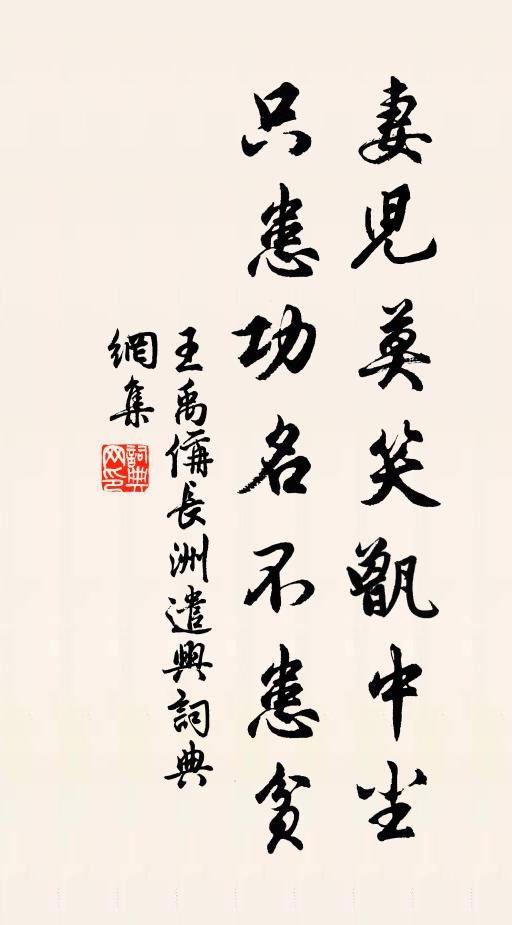 妻兒莫笑甑中尘
只患功名不患貧
王禹偁長洲遣興詞典
網集
詞典
网印